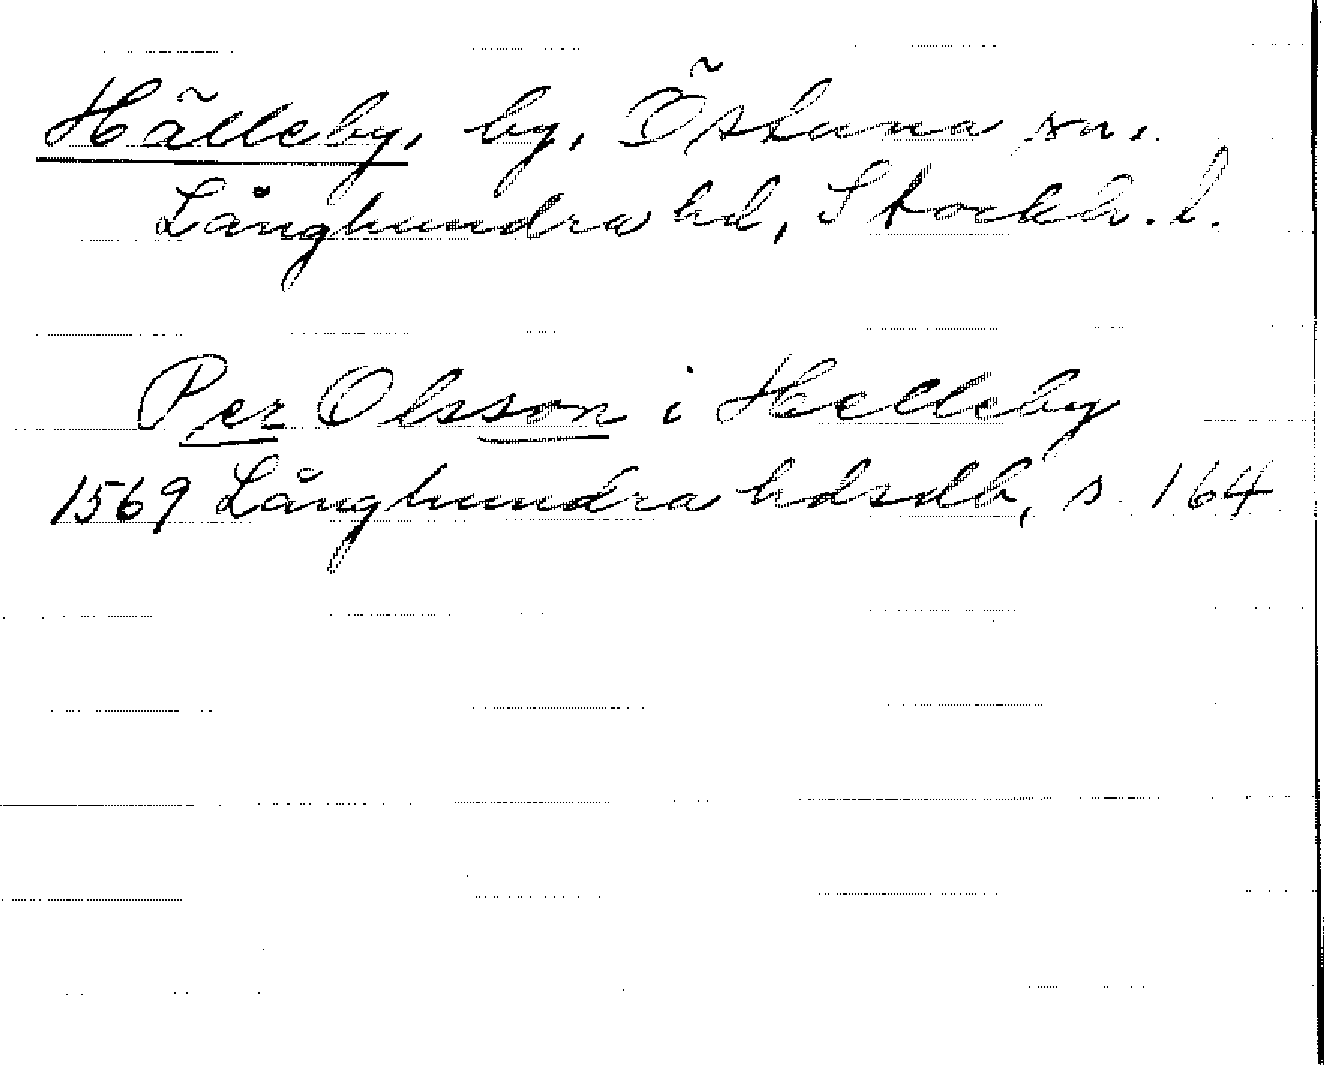 Hälleby, by, Östuna sn,
Långhundra hd, Stockh. l.
Per Olsson i Helleby
1569 Långhundra hdsdb, s 164